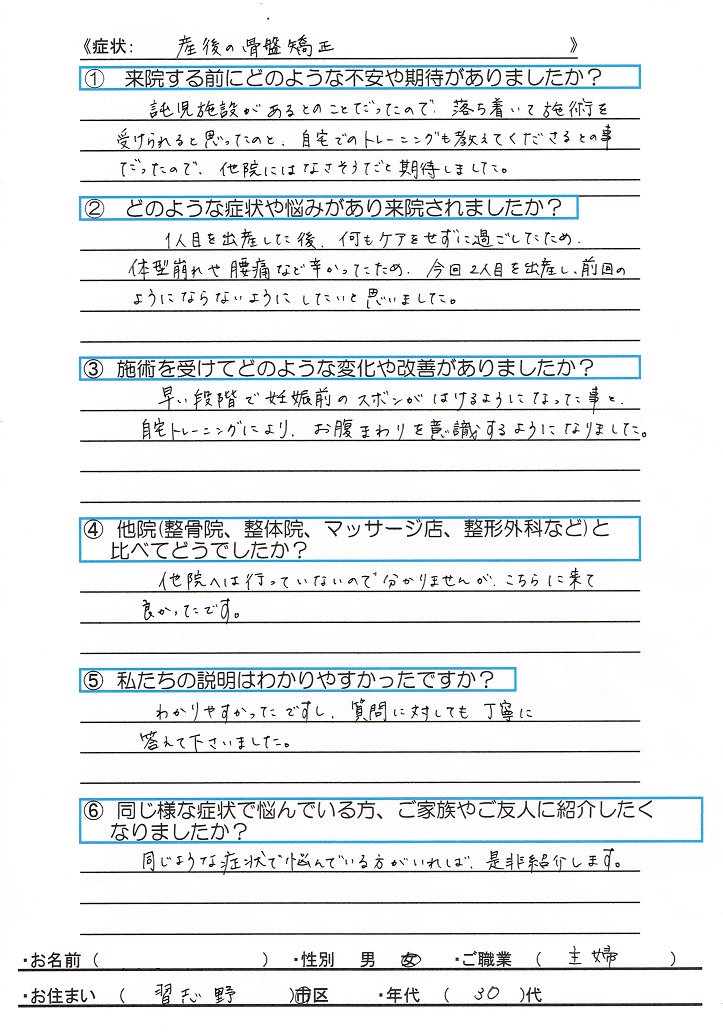 《症状： 産後の骨盤矯正 》
① 来院する前にどのような不安や期待がありましたか？
託児施設があるとのことだったので、落ち着いて施術を
受けられると思ったのと、自宅でのトレーニングも教えてくださるとの事
だったので、他院にはなさそうだと期待しました。
② どのような症状や悩みがあり来院されましたか？
1人目を出産した後、何もケアをせずに過ごしたため、
体型崩れや腰痛など辛かったため、今回2人目を出産し、前回の
ようにならないようにしたいと思いました。
③ 施術を受けてどのような変化や改善がありましたか？
早い段階で妊娠前のズボンがはけるようになった事と、
自宅トレーニングにより、お腹まわりを意識するようになりました。
④ 他院(整骨院、整体院、マッサージ店、整形外科など)と
比べてどうでしたか？
他院へは行っていないので分かりませんが、こちらに来て
良かったです。
⑤ 私たちの説明はわかりやすかったですか？
わかりやすかったですし、質問に対しても丁寧に
答えて下さいました。
⑥ 同じ様な症状で悩んでいる方、ご家族やご友人に紹介したく
なりましたか？
同じような症状で悩んでいる方がいれば、是非紹介します。
・お名前（ ） ・性別 男 女 ・ご職業（ 主婦 ）
・お住まい（ 習志野 ）市区 ・年代（ 30 ）代